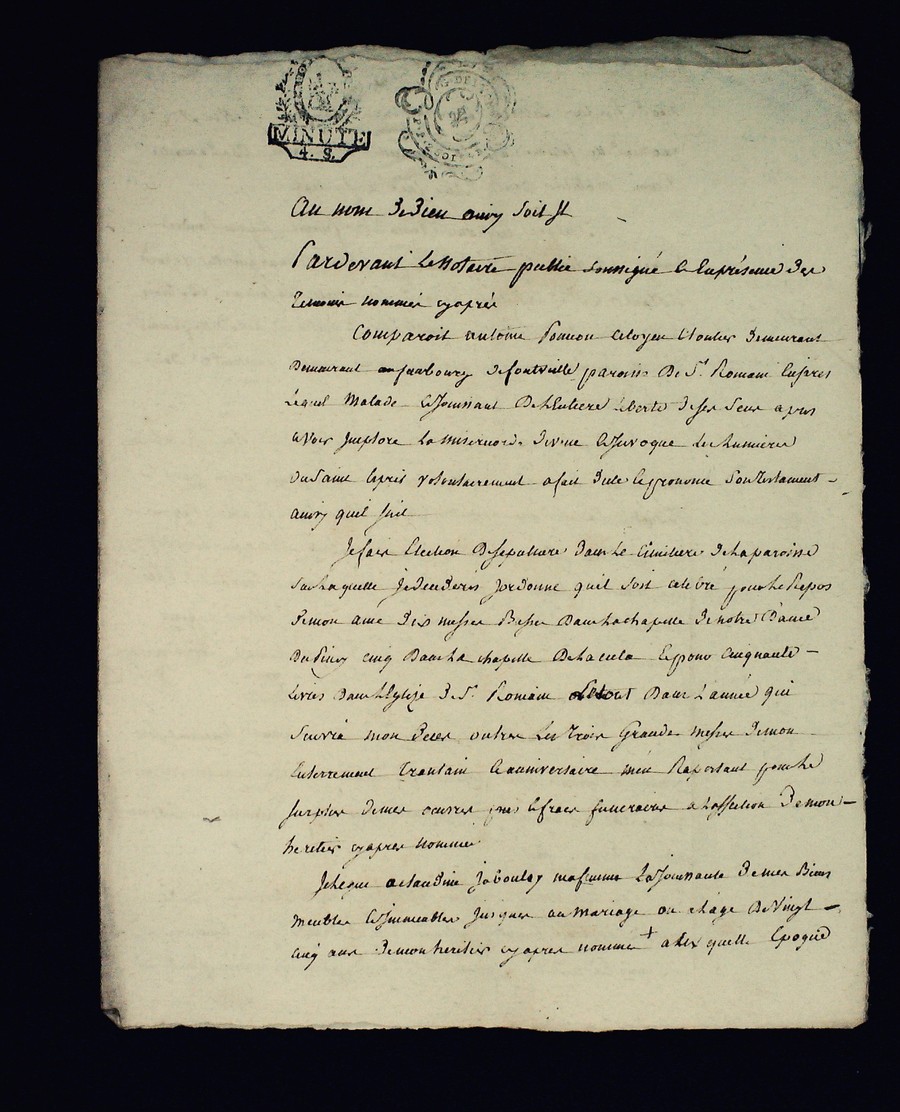 MINUTE
4. S.
G. DE
au nom de Dieu ainsy soit il
Pardevant le Notaire public soussigné & en présence des
temoins nommés cyaprés
Comparoit antoine citoyen demeurant
demeurant au faubourg de fontville paroisse de St Romain
lequel malade & jouissant de l'entiere liberté de ses sens apres
avoir imploré la misericorde divine & invoqué les lumieres
du saint esprit volontairement a fait dicté & prononcé son testament
ainsy quil suit
je fais election de sepulture dans le cimetiere de la paroisse
sur laquelle je decederais j'ordonne qu'il soit celebré pour le repos
de mon ame dix messes Basses dans la chapelle de notre Dame
cinq dans la chapelle & pour cinquante
livres dans l'Eglize de St Romain le tout dans l'année qui
suivra mon deces outre les trois grandes messes de mon
enterrement trantain & anniversaire men Raportant pour le
surplus de mes œuvres pies & frais funeraires a l'affection de mon
heretier cyapres nommé
je legue a claudine jaboulay ma femme la jouissance de mes Biens
meubles & immeubles jusques au mariage ou a l'age de Vingt
cinq ans de mon heretier cyapres nommé + a laquelle Epoque